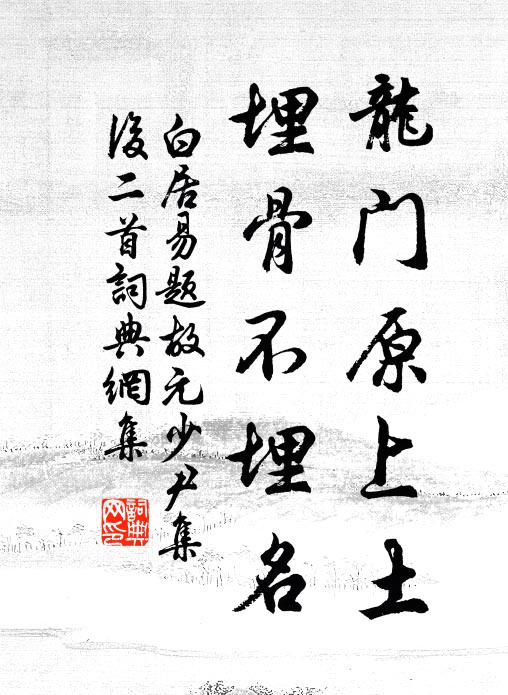 龍门原上土
埋骨不埋名
白居易题故元少尹集
後二首詞典網集
詞典
网印